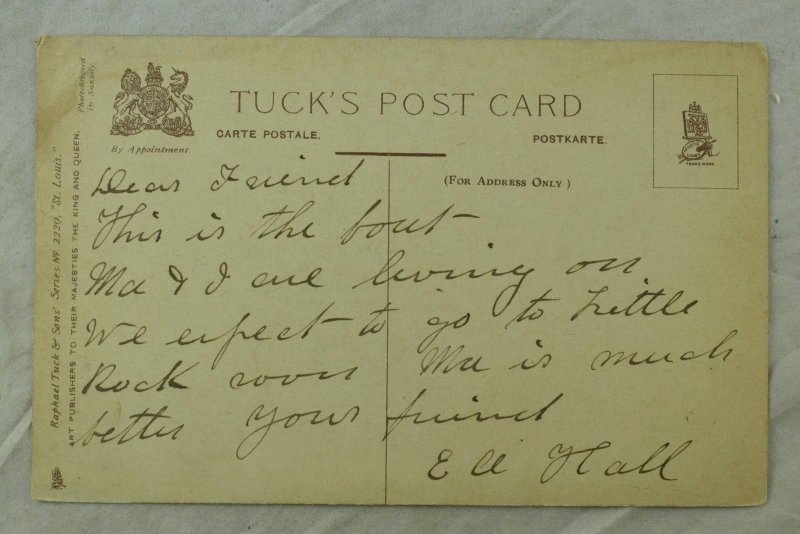 TUCK'S POST CARD
CARTE POSTALE.
POSTKARTE.
By Appointment.
(FOR ADDRESS ONLY)
TRADE MARK
Photochromed
in Saxony.
Raphael Tuck & Sons' Series No 2220, "St. Louis."
ART PUBLISHERS TO THEIR MAJESTIES THE KING AND QUEEN.
Dear Friend
This is the bout
Ma & I are living on
We expect to go to Little
Rock soon Ma is much
better Your friend
Hall